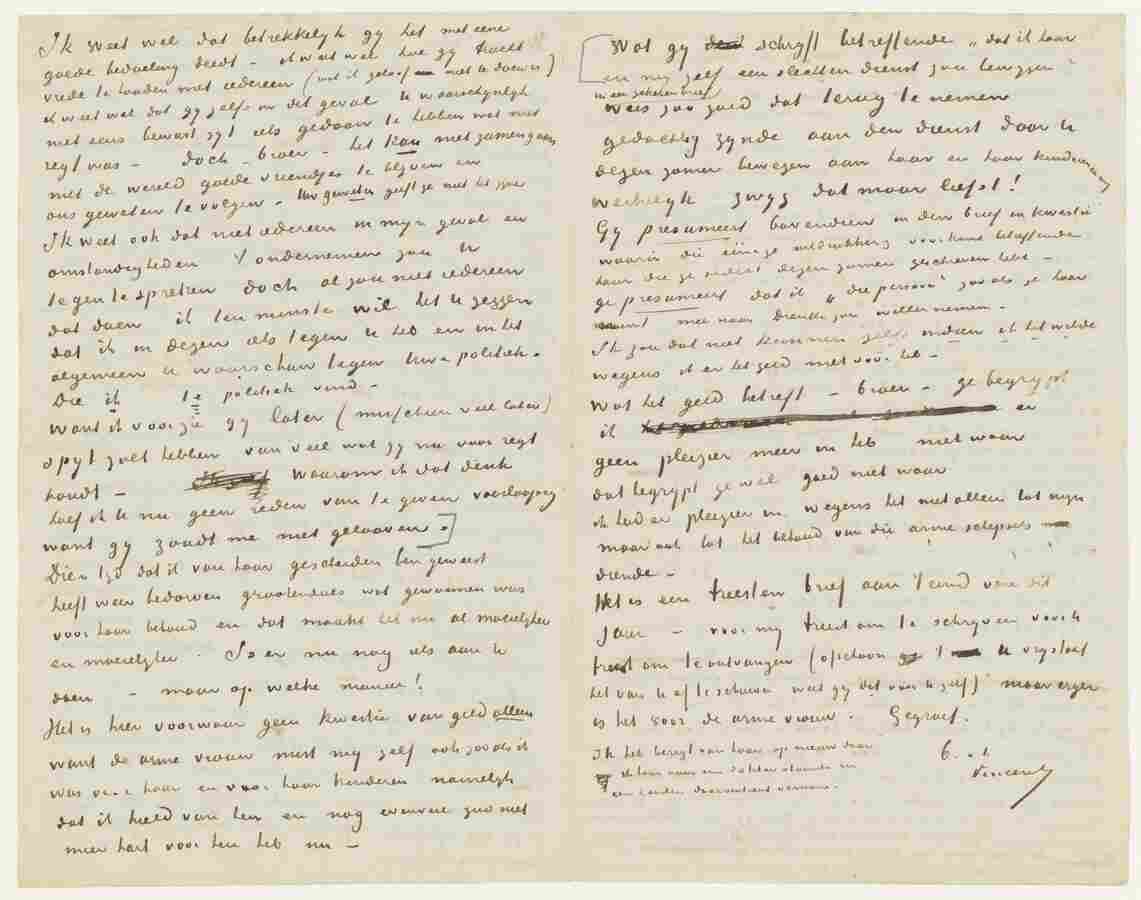 Ik weet wel dat betrekkelyk gy het met eene
goede bedoeling deedt – ik weet wel hoe gy tracht
vrede te houden met iedereen (wat ik geloof niet te doen is)
ik weet wel dat gy zelfs in dit geval U waarschynlyk
niet eens bewust zyt iets gedaan te hebben wat niet
regt was – doch – broer – het kan niet zamengaan
met de wereld goede vriendjes te blyven en
ons geweten te volgen – Uw geweten geeft ge niet het zyne
Ik weet ook dat niet iedereen in myn geval en
omstandigheden 't ondernemen zou U
tegen te spreken doch al zou niet iedereen
dat doen ik ten minste wil het U zeggen
dat ik in dezen iets tegen U heb en in het
algemeen U waarschuw tegen Uwe politiek.
Die ik te politiek vind –
Want ik voorzie gy later (misschien veel later)
spyt zult hebben van veel wat gy nu voor regt
houdt – waarom ik dat denk
hoef ik U nu geen reden van te geven voorloopig
want gy zoudt me niet gelooven.]
Dien tyd dat ik van haar gescheiden ben geweest
heeft weer bedorven grootendeels wat gewonnen was
voor haar behoud en dat maakt het nu al moeielyker
en moeielyker. Is er nu nog iets aan te
doen – maar op welke manier!
Het is hier voorwaar geen kwestie van geld alleen
want de arme vrouw mist my zelf ook zooals ik
was voor haar en voor haar kinderen namelyk
dat ik hield van hen en nog evenveel zoo niet
meer hart voor hen heb nu –
[Wat gy schryft betreffende „dat ik haar
en my zelf een slechten dienst zou bewyzen"
in een gekeken brief
Wees zoo goed dat terug te nemen
gedachtig zynde aan den dienst door U
dezen zomer bewezen aan haar en haar kinderen en my
werkelyk zwyg dat maar liefst!
Gy presumeert bovendien in dien brief in kwestie
waarin die eenige uitdrukking voorkomt betreffende
haar die ge sedert dezen zomer geschreven hebt –
ge presumeert dat ik „die persoon" zooals ge haar
noemt mee naar Drenthe zou willen nemen –
Ik zou dat niet kunnen zelfs indien ik het wilde
wegens ik er het geld niet voor heb –
Wat het geld betreft – broer – ge begrypt
ik er
geen pleizier meer in heb niet waar
dat begrypt ge wel goed niet waar
ik had er pleizier in wegens het niet alleen tot myn
maar ook tot het behoud van die arme schepsels
diende –
Het is een triesten brief aan 't eind van dit
jaar – voor my triest om te schryven voor U
triest om te ontvangen (ofschoon 't U vrystaat
het van U af te schuiven wat gy dit voor U zelf) maar erger
is het voor de arme vrouw. Gegroet.
Ik heb berigt van haar op nieuw door
Vincent